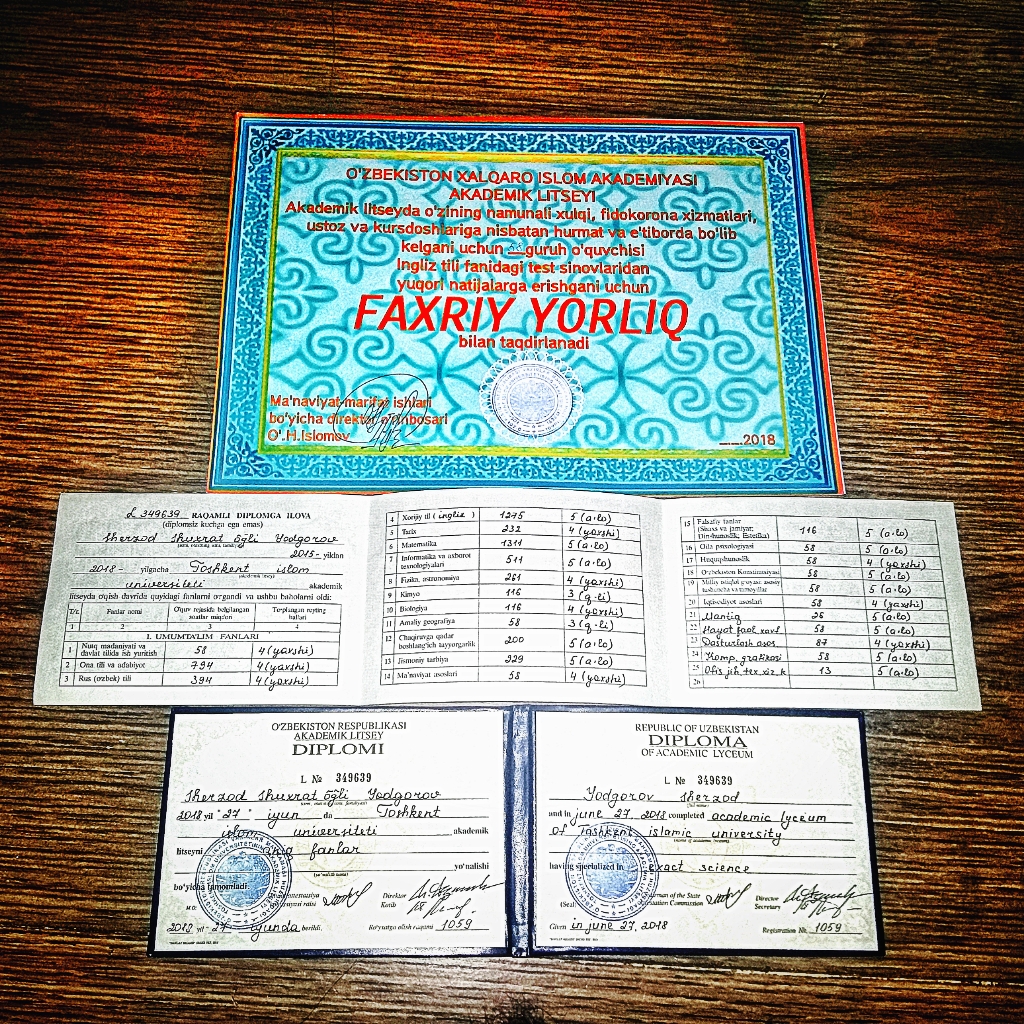 O'ZBEKISTON XALQARO ISLOM AKADEMIYASI
AKADEMIK LITSEYI
Akademik litseyda o'zining namunali xulqi, fidokorona xizmatlari,
ustoz va kursdoshlariga nisbatan hurmat va e'tiborda bo'lib
kelgani uchun guruh o'quvchisi
Ingliz tili fanidagi test sinovlaridan
yuqori natijalarga erishgani uchun
FAXRIY YORLIQ
bilan taqdirlanadi
Ma'naviyat-marifat ishlari
bo'yicha direktor o'rinbosari
O'.H.Islomov
2018
L 349639 RAQAMLI DIPLOMGA ILOVA
(diplomsiz kuchga ega emas)
Sherzod Shuxrat õğli Yodgorov
2015- yildan
2018- yilgacha Toshkent islom
universiteti akademik
litseyda o'qish davrida quyidagi fanlarni o'rgandi va ushbu baholarni oldi:
T/r. Fanlar nomi O'quv rejasida belgilangan soatlar miqdori To'plangan reyting ballari
1 2 3 4
I. UMUMTA'LIM FANLARI
1 Nutq madaniyati va davlat tilida ish yuritish 58 4 (yaxshi)
2 Ona tili va adabiyot 794 4 (yaxshi)
3 Rus (o'zbek) tili 394 4 (yaxshi)
4 Xorijiy til (ingliz) 1275 5 (a'lo)
5 Tarix 232 4 (yaxshi)
6 Matematika 1311 5 (a'lo)
7 Informatika va axborot texnologiyalari 511 5 (a'lo)
8 Fizika, astronomiya 261 4 (yaxshi)
9 Kimyo 116 3 (q-li)
10 Biologiya 116 4 (yaxshi)
11 Amaliy geografiya 58 3 (q-li)
12 Chaqiruvga qadar boshlang'ich tayyorgarlik 200 5 (a'lo)
13 Jismoniy tarbiya 229 5 (a'lo)
14 Ma'naviyat asoslari 58 4 (yaxshi)
15 Falsafiy fanlar (Shaxs va jamiyat; Dinshunoslik, Estetika) 116 5 (a'lo)
16 Oila psixologiyasi 58 5 (a'lo)
17 Huquqshunoslik 58 4 (yaxshi)
18 O'zbekiston Konstitutsiyasi 58 5 (a'lo)
19 Milliy istiqlol g'oyasi: asosiy tushuncha va tamoyillar 58 5 (a'lo)
20 Iqtisodiyot asoslari 58 4 (yaxshi)
21 Mantiq 26 5 (a'lo)
22 Hayot faol xavf 58 5 (a'lo)
23 Dasturlash asos 87 4 (yaxshi)
24 Komp. grafikasi 58 5 (a'lo)
25 Ofis jih. tex. xiz. k 13 5 (a'lo)
26
O'ZBEKISTON RESPUBLIKASI
AKADEMIK LITSEY
DIPLOMI
L № 349639
Sherzod Shuxrat õğli Yodgorov
2018 yil "27" iyun da Toshkent
islom universiteti akademik
litseyni aniq fanlar
yo'nalishi
bo'yicha tamomladi.
Direktor
Kotib
M.O.
2018 yil "27" iyunda berildi. Ro'yxatga olish raqami 1059
REPUBLIC OF UZBEKISTAN
DIPLOMA
OF ACADEMIC LYCEUM
L № 349639
Yodgorov Sherzod
and in june 27, 2018 completed academic lyceum
of Tashkent islamic university
having specialized in exact science
Chairman of the State
Attestation Commission
Director
Secretary
(Seal)
Given in june 27, 2018 Registration № 1059